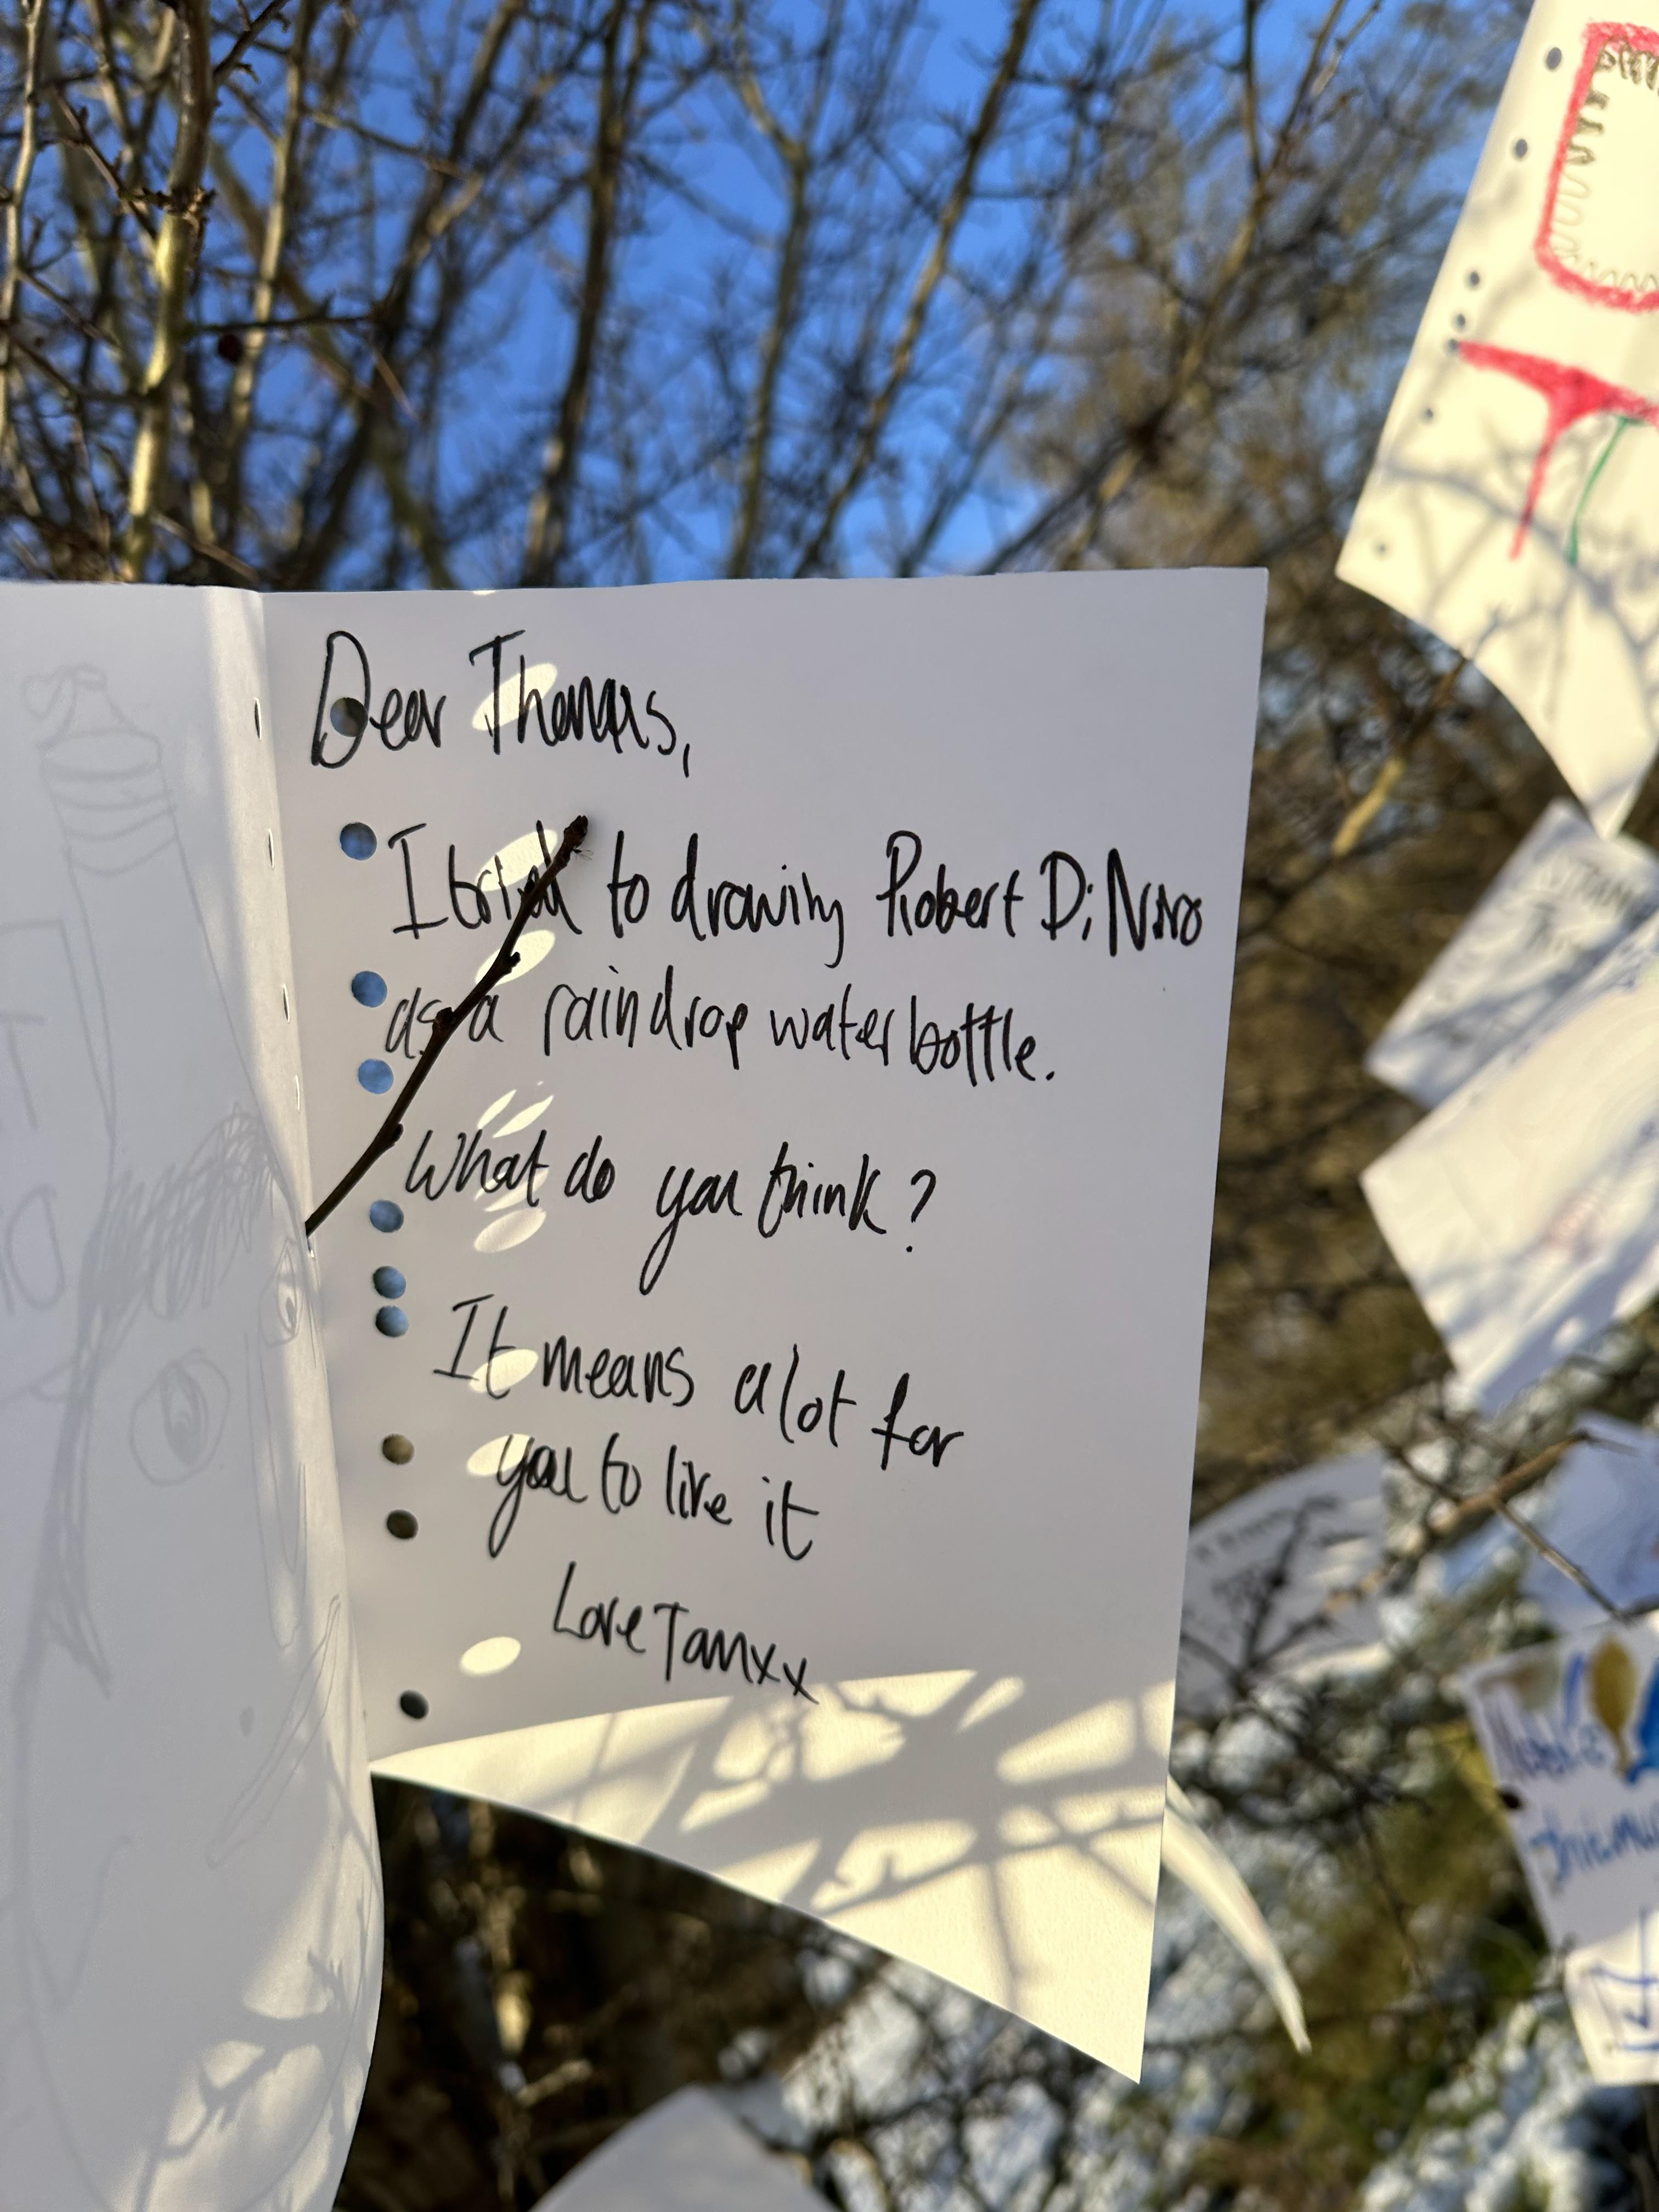 Dear Thomas,
I tried to drawing Robert Di Niro
as a raindrop water bottle.
What do you think?
It means a lot for
you to like it
Love Tamxx